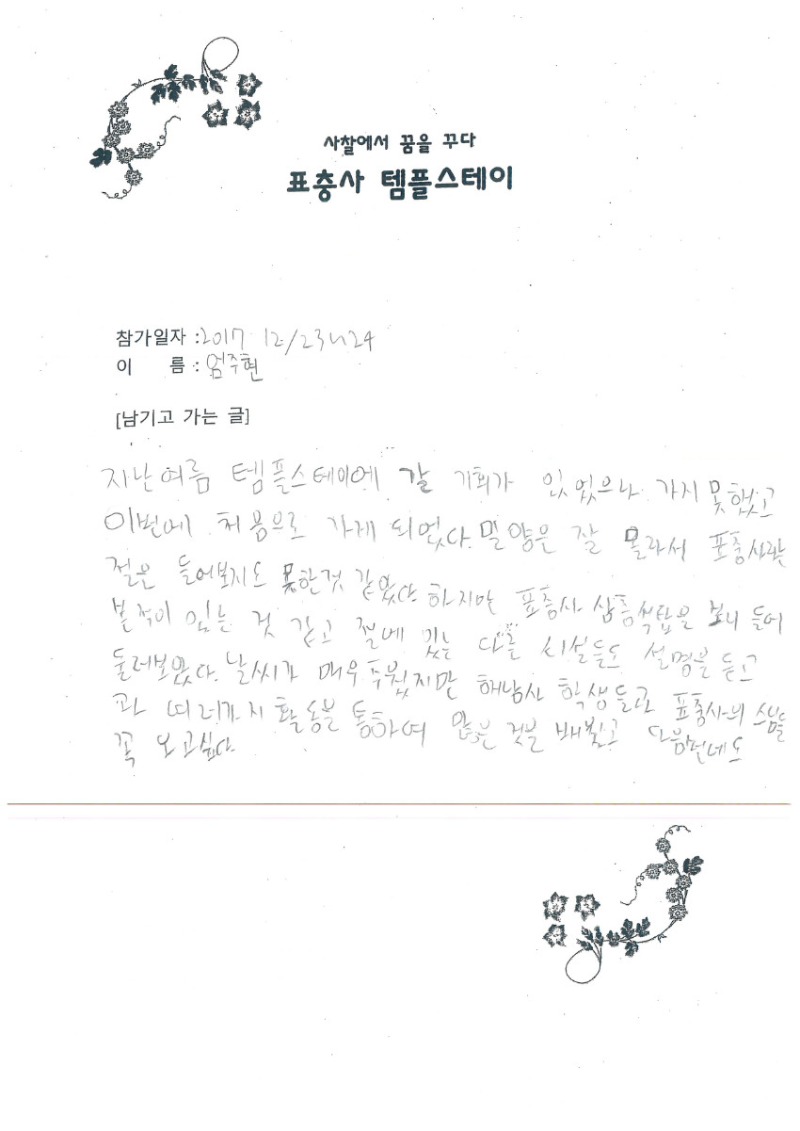 사찰에서 꿈을 꾸다
표충사 템플스테이
참가일자 :2017 12/23~24
이 름 : 엄주현
[남기고 가는 글]
지난여름 템플스테이에 갈 기회가 있었으나 가지 못했고
이번에 처음으로 가게 되었다. 밀양은 잘 몰라서 표충사란
절은 들어보지도 못한것 같았다. 하지만 표충사 삼층석탑은 보니 들어
본적이 있는 것 같고 절에 있는 다른 시설들도 설명을 듣고
둘러보았다. 날씨가 매우 추웠지만 학생들과 표충사의 스님들
과 여러가지 활동을 통하여 많은 것을 배웠고 다음번에도
꼭 오고싶다.